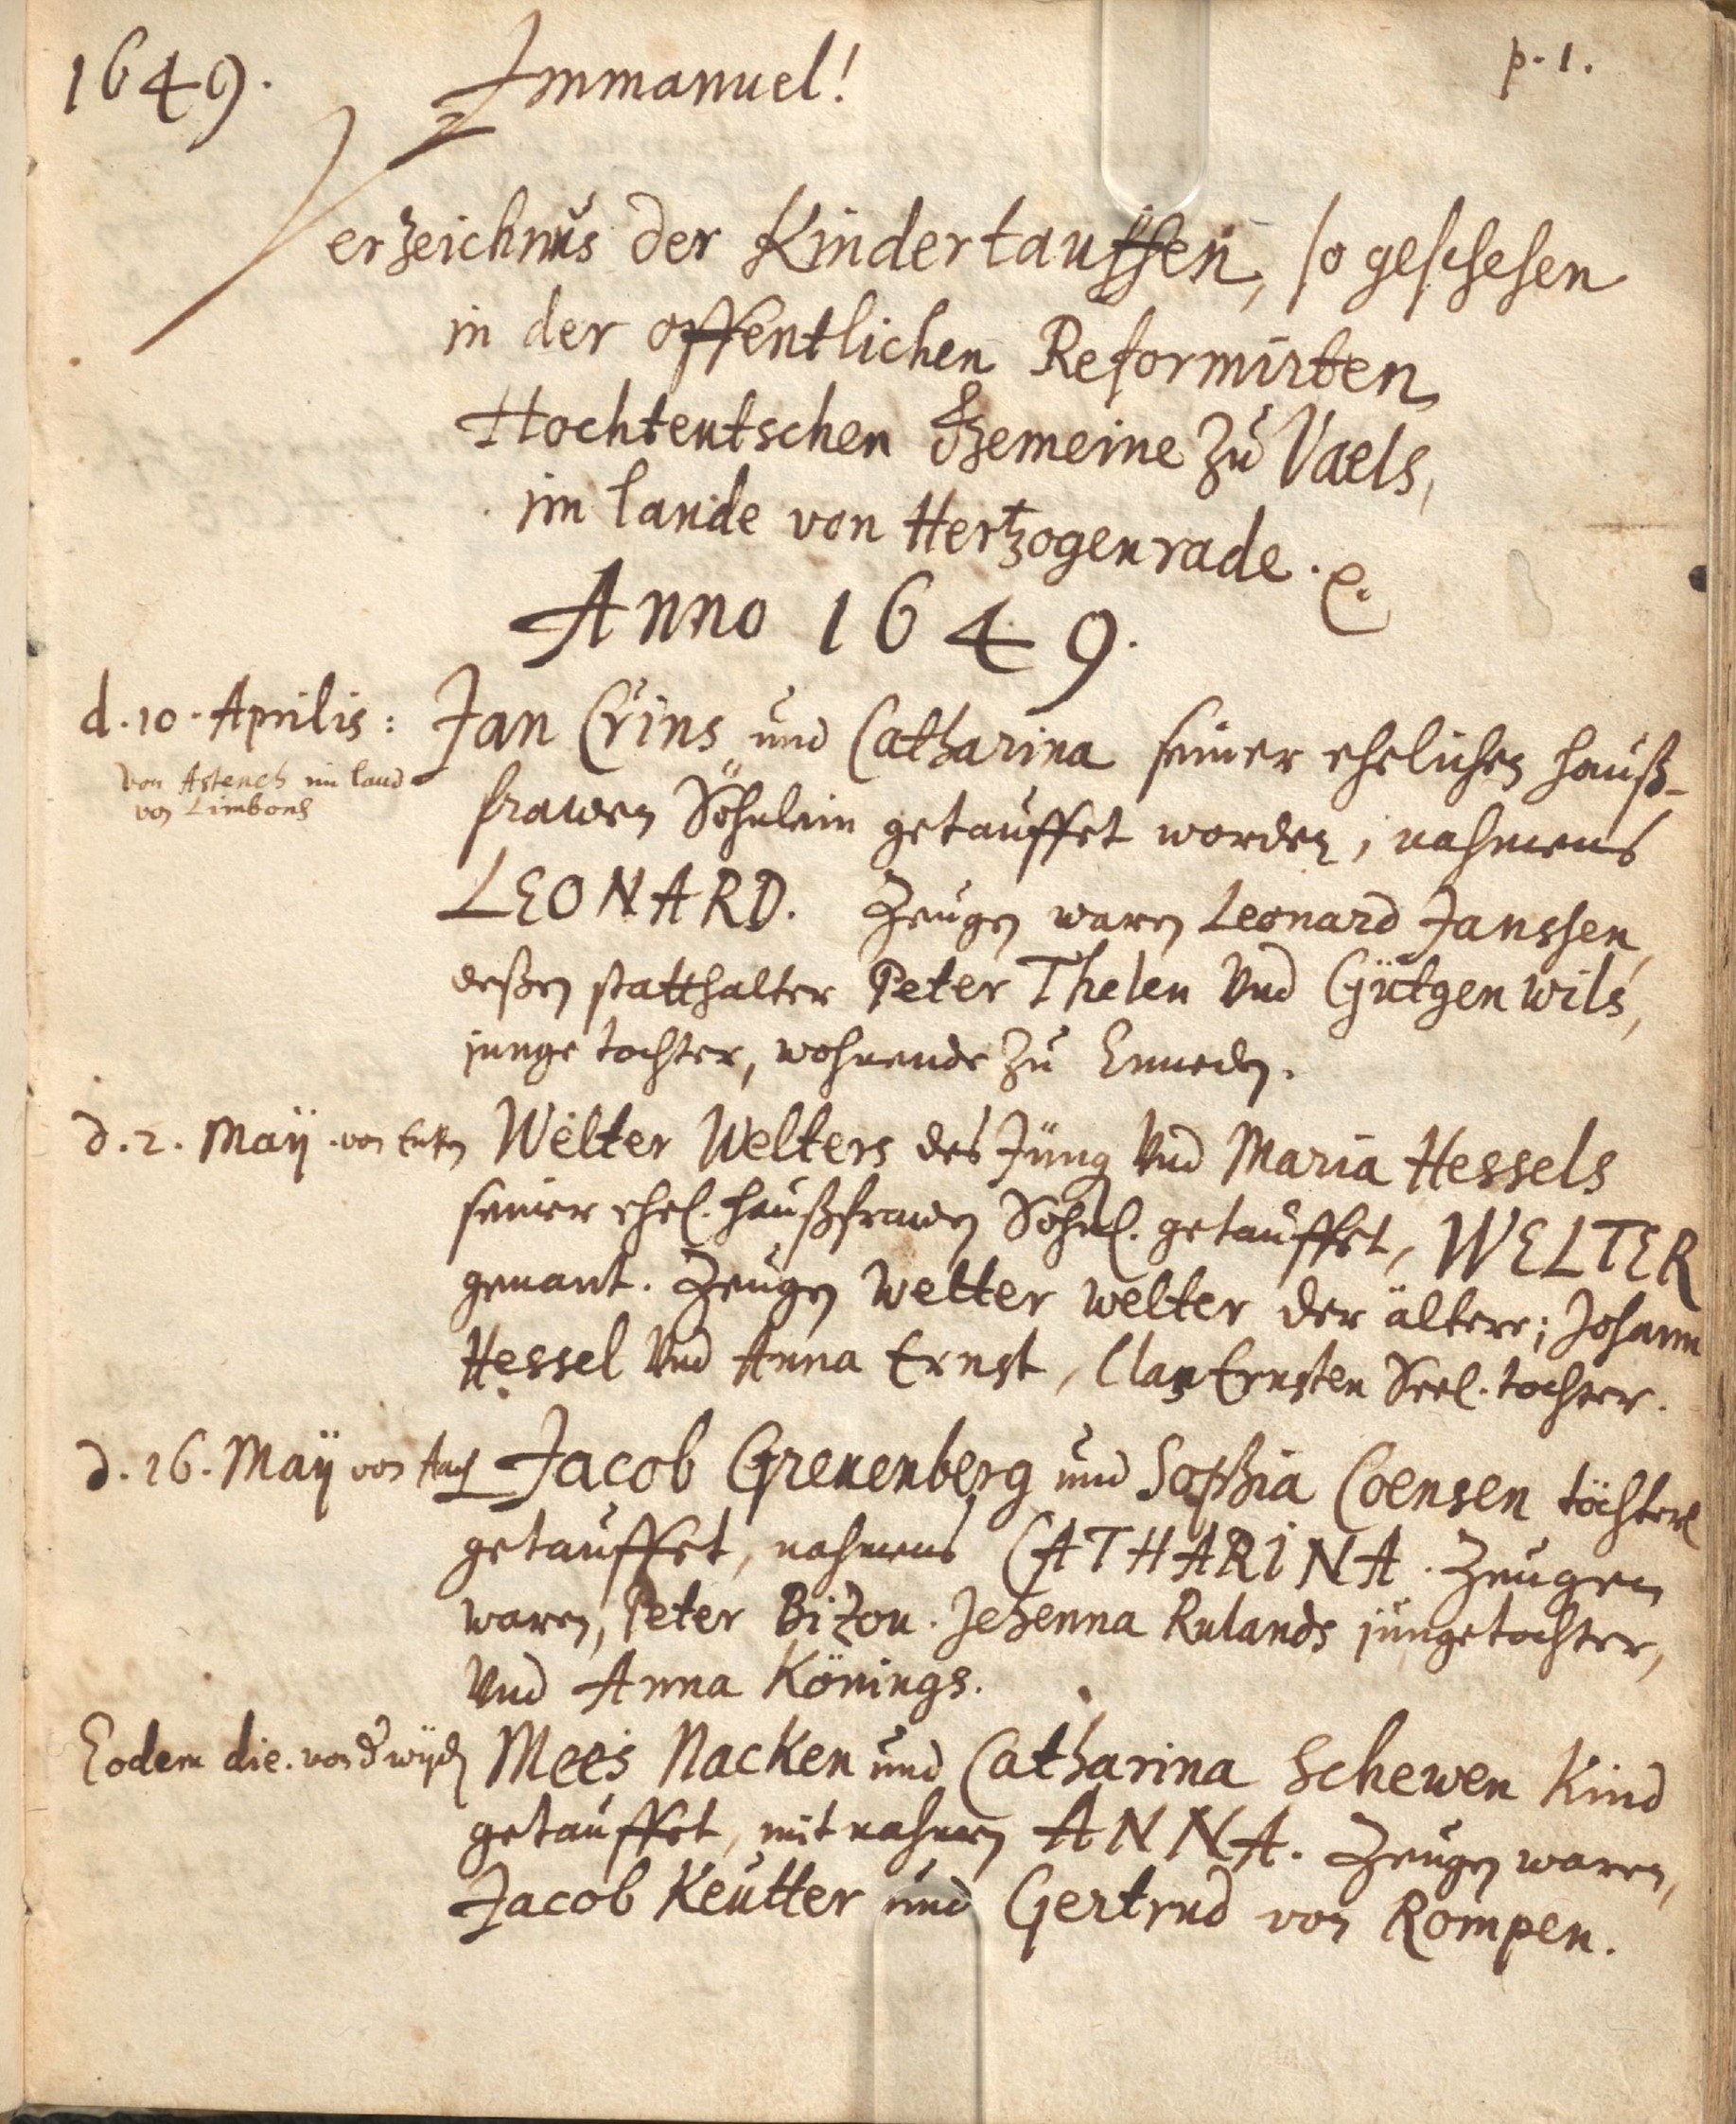 1649. Immanuel! p. 1.
Verzeichnus der Kindertauffen, so geschehen
in der offentlichen Reformirten
Hochteutschen Gemeine zu Vaels,
im lande von Hertzogenrade.
Anno 1649.
d. 10. Aprilis: Jan Crins und Catharina seiner ehelichen hauß-
von Asteneh im land
von Limborg
frawen Söhnlein getauffet worden, nahmens
LEONARD. Zeugen waren Leonard Janssen,
deßen statthalter Peter Thelen Und Gütgen wils,
junge tochter, wohnende zu
d. 2. Maÿ. von Welter Welters des Jüng Und Maria Hessels
seiner ehel. haußfrawen Söhnl. getauffet, WELTER
genant. Zeugen Welter welter der ältere; Johann
Hessel Und Anna Ernst, Clas Ernsten Seel. tochter.
d. 16. Maÿ von Aach Jacob Greuenberg und Sophia Coensen töchterl
getauffet, nahmens CATHARINA. Zeugen
waren, Peter Bizou. Jehenna Rulands junge tochter,
Und Anna Könings.
Eodem die. von Mees Nacken und Catharina Schewen Kind
getauffet, mit nahmen ANNA. Zeugen waren,
Jacob Keutter und Gertrud von Rompen.